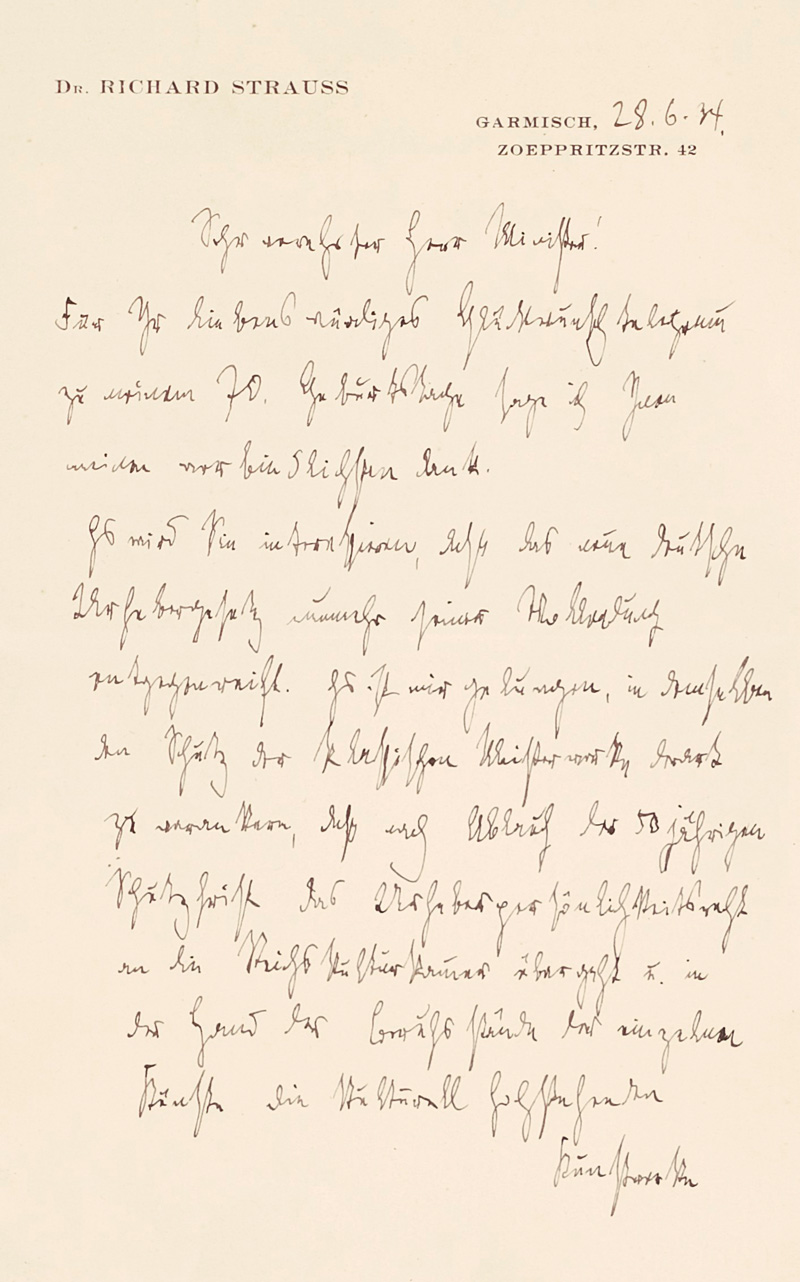 DR. RICHARD STRAUSS
GARMISCH, 28.6.34.
ZOEPPRITZSTR. 42
Sehr verehrter Herr Minister!
Für Ihr liebenswürdiges Glückwunschtelegramm
zu meinem 70. Geburtstage sage ich Ihnen
meinen verbindlichsten Dank.
Es wird Sie interessieren, daß das neue deutsche
Urhebergesetz nunmehr seiner Vollendung
entgegenreift. Es ist mir gelungen, in demselben
den Schutz der klassischen Meisterwerke derart
zu verankern, daß nach Ablauf der 50 jährigen
Schutzfrist das Urheberpersönlichkeitsrecht
an die Reichskulturkammer übergeht u. in
der Hand der Berufsstände der einzelnen
Künste die kulturell hochstehenden
Kunstwerke